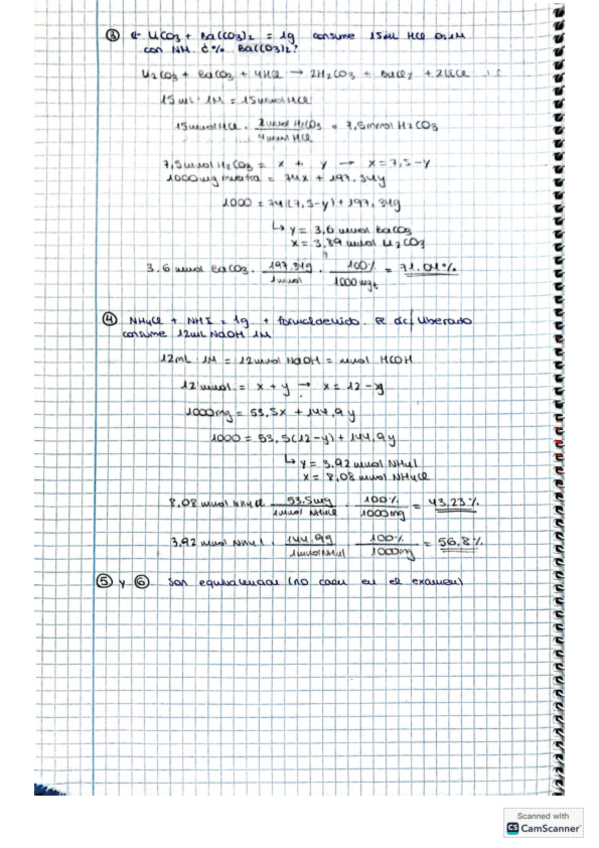 ③ LiCO3 + Ba(CO3)2 = 1g consume 15mL HCl 0.1M
con NM. ¿% Ba(CO3)2?
Li2CO3 + BaCO3 + 4HCl → 2H2CO3 + BaCl2 + 2LiCl
15mL · 1M = 15mmol HCl
15mmol HCl · 2mmol H2CO3 / 4mmol HCl = 7,5mmol H2CO3
7,5mmol H2CO3 = x + y → x = 7,5-y
1000mg muestra = 74x + 197,34y
1000 = 74(7,5-y) + 197,34y
↳ y = 3,6 mmol BaCO3
x = 3,89 mmol Li2CO3
3,6 mmol BaCO3 · 197,34g / 1mmol · 100% / 1000mgt = 71,01%
④ NH4Cl + NH4I = 1g + formaldehido. El ác/ liberado
consume 12mL NaOH 1M
12mL · 1M = 12mmol NaOH = mmol HCOH
12mmol = x + y → x = 12-y
1000mg = 53,5x + 144,9y
1000 = 53,5(12-y) + 144,9y
↳ y = 3,92 mmol NH4I
x = 8,08 mmol NH4Cl
8,08 mmol NH4Cl · 53,5mg / 1mmol NH4Cl · 100% / 1000mg = 43,23%
3,92 mmol NH4I · 144,9g / 1mmol NH4I · 100% / 1000mg = 56,8%
⑤ y ⑥ Son equivalencias (no caen en el examen)
Scanned with
CS CamScanner